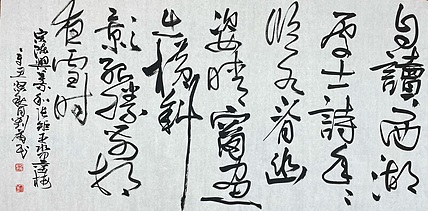 自讀西湖
處士詩年々
臨水看幽
姿晴窗畫
出橫斜
影絕勝前村
夜雪時
宋陳與義和張規臣水墨梅